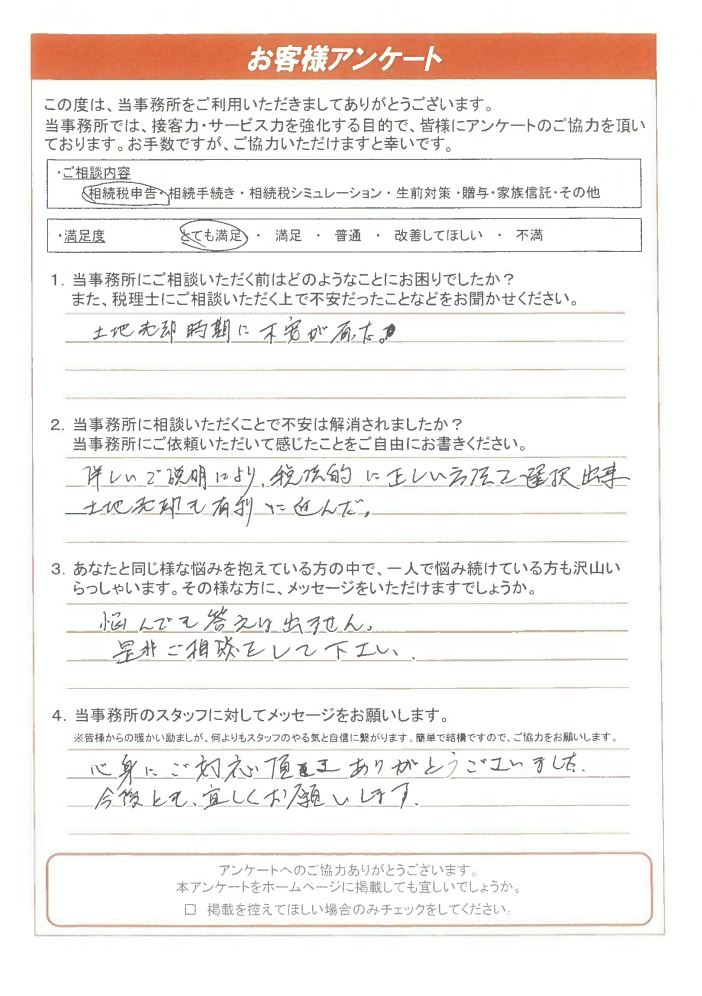 お客様アンケート
この度は、当事務所をご利用いただきましてありがとうございます。
当事務所では、接客力・サービス力を強化する目的で、皆様にアンケートのご協力を頂い
ております。お手数ですが、ご協力いただけますと幸いです。
・ご相談内容
相続税申告・相続手続き・相続税シミュレーション・生前対策・贈与・家族信託・その他
・満足度 とても満足 ・ 満足 ・ 普通 ・ 改善してほしい ・ 不満
1. 当事務所にご相談いただく前はどのようなことにお困りでしたか?
また、税理士にご相談いただく上で不安だったことなどをお聞かせください。
土地売却時期に不安が有た。
2. 当事務所に相談いただくことで不安は解消されましたか?
当事務所にご依頼いただいて感じたことをご自由にお書きください。
詳しいご説明により、税法的に正しい方法で選択出来
土地売却も有利に進んだ。
3. あなたと同じ様な悩みを抱えている方の中で、一人で悩み続けている方も沢山い
らっしゃいます。その様な方に、メッセージをいただけますでしょうか。
悩んでも答えは出ません。
是非ご相談をして下さい。
4. 当事務所のスタッフに対してメッセージをお願いします。
※皆様からの暖かい励ましが、何よりもスタッフのやる気と自信に繋がります。簡単で結構ですので、ご協力をお願いします。
心身にご対応頂き ありがとうございました。
今後とも、宜しくお願いします。
アンケートへのご協力ありがとうございます。
本アンケートをホームページに掲載しても宜しいでしょうか。
□ 掲載を控えてほしい場合のみチェックをしてください。